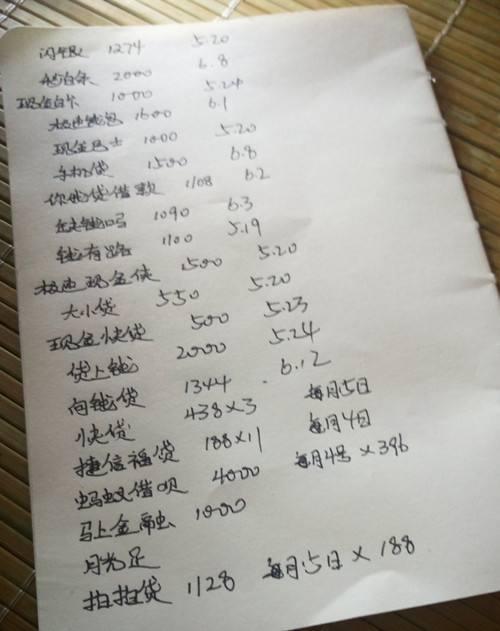 闪银 1274 5.20
2000 6.8
现金白卡 1000 5.24
极速钱包 1600 6.1
现金巴士 1000 5.20
手机贷 1500 6.8
你我贷借款 1108 6.2
缺钱吗 1090 6.3
钱有路 1100 5.19
极速现金侠 1500 5.20
大小贷 550 5.20
现金快贷 500 5.23
贷上钱 2000 5.24
向钱贷 1344 6.12
快贷 438×3 每月5日
捷信福贷 188×11 每月4日
蚂蚁借呗 4000 每月4号×396
马上金融 1000
月光足
拍拍贷 1128 每月15日×188